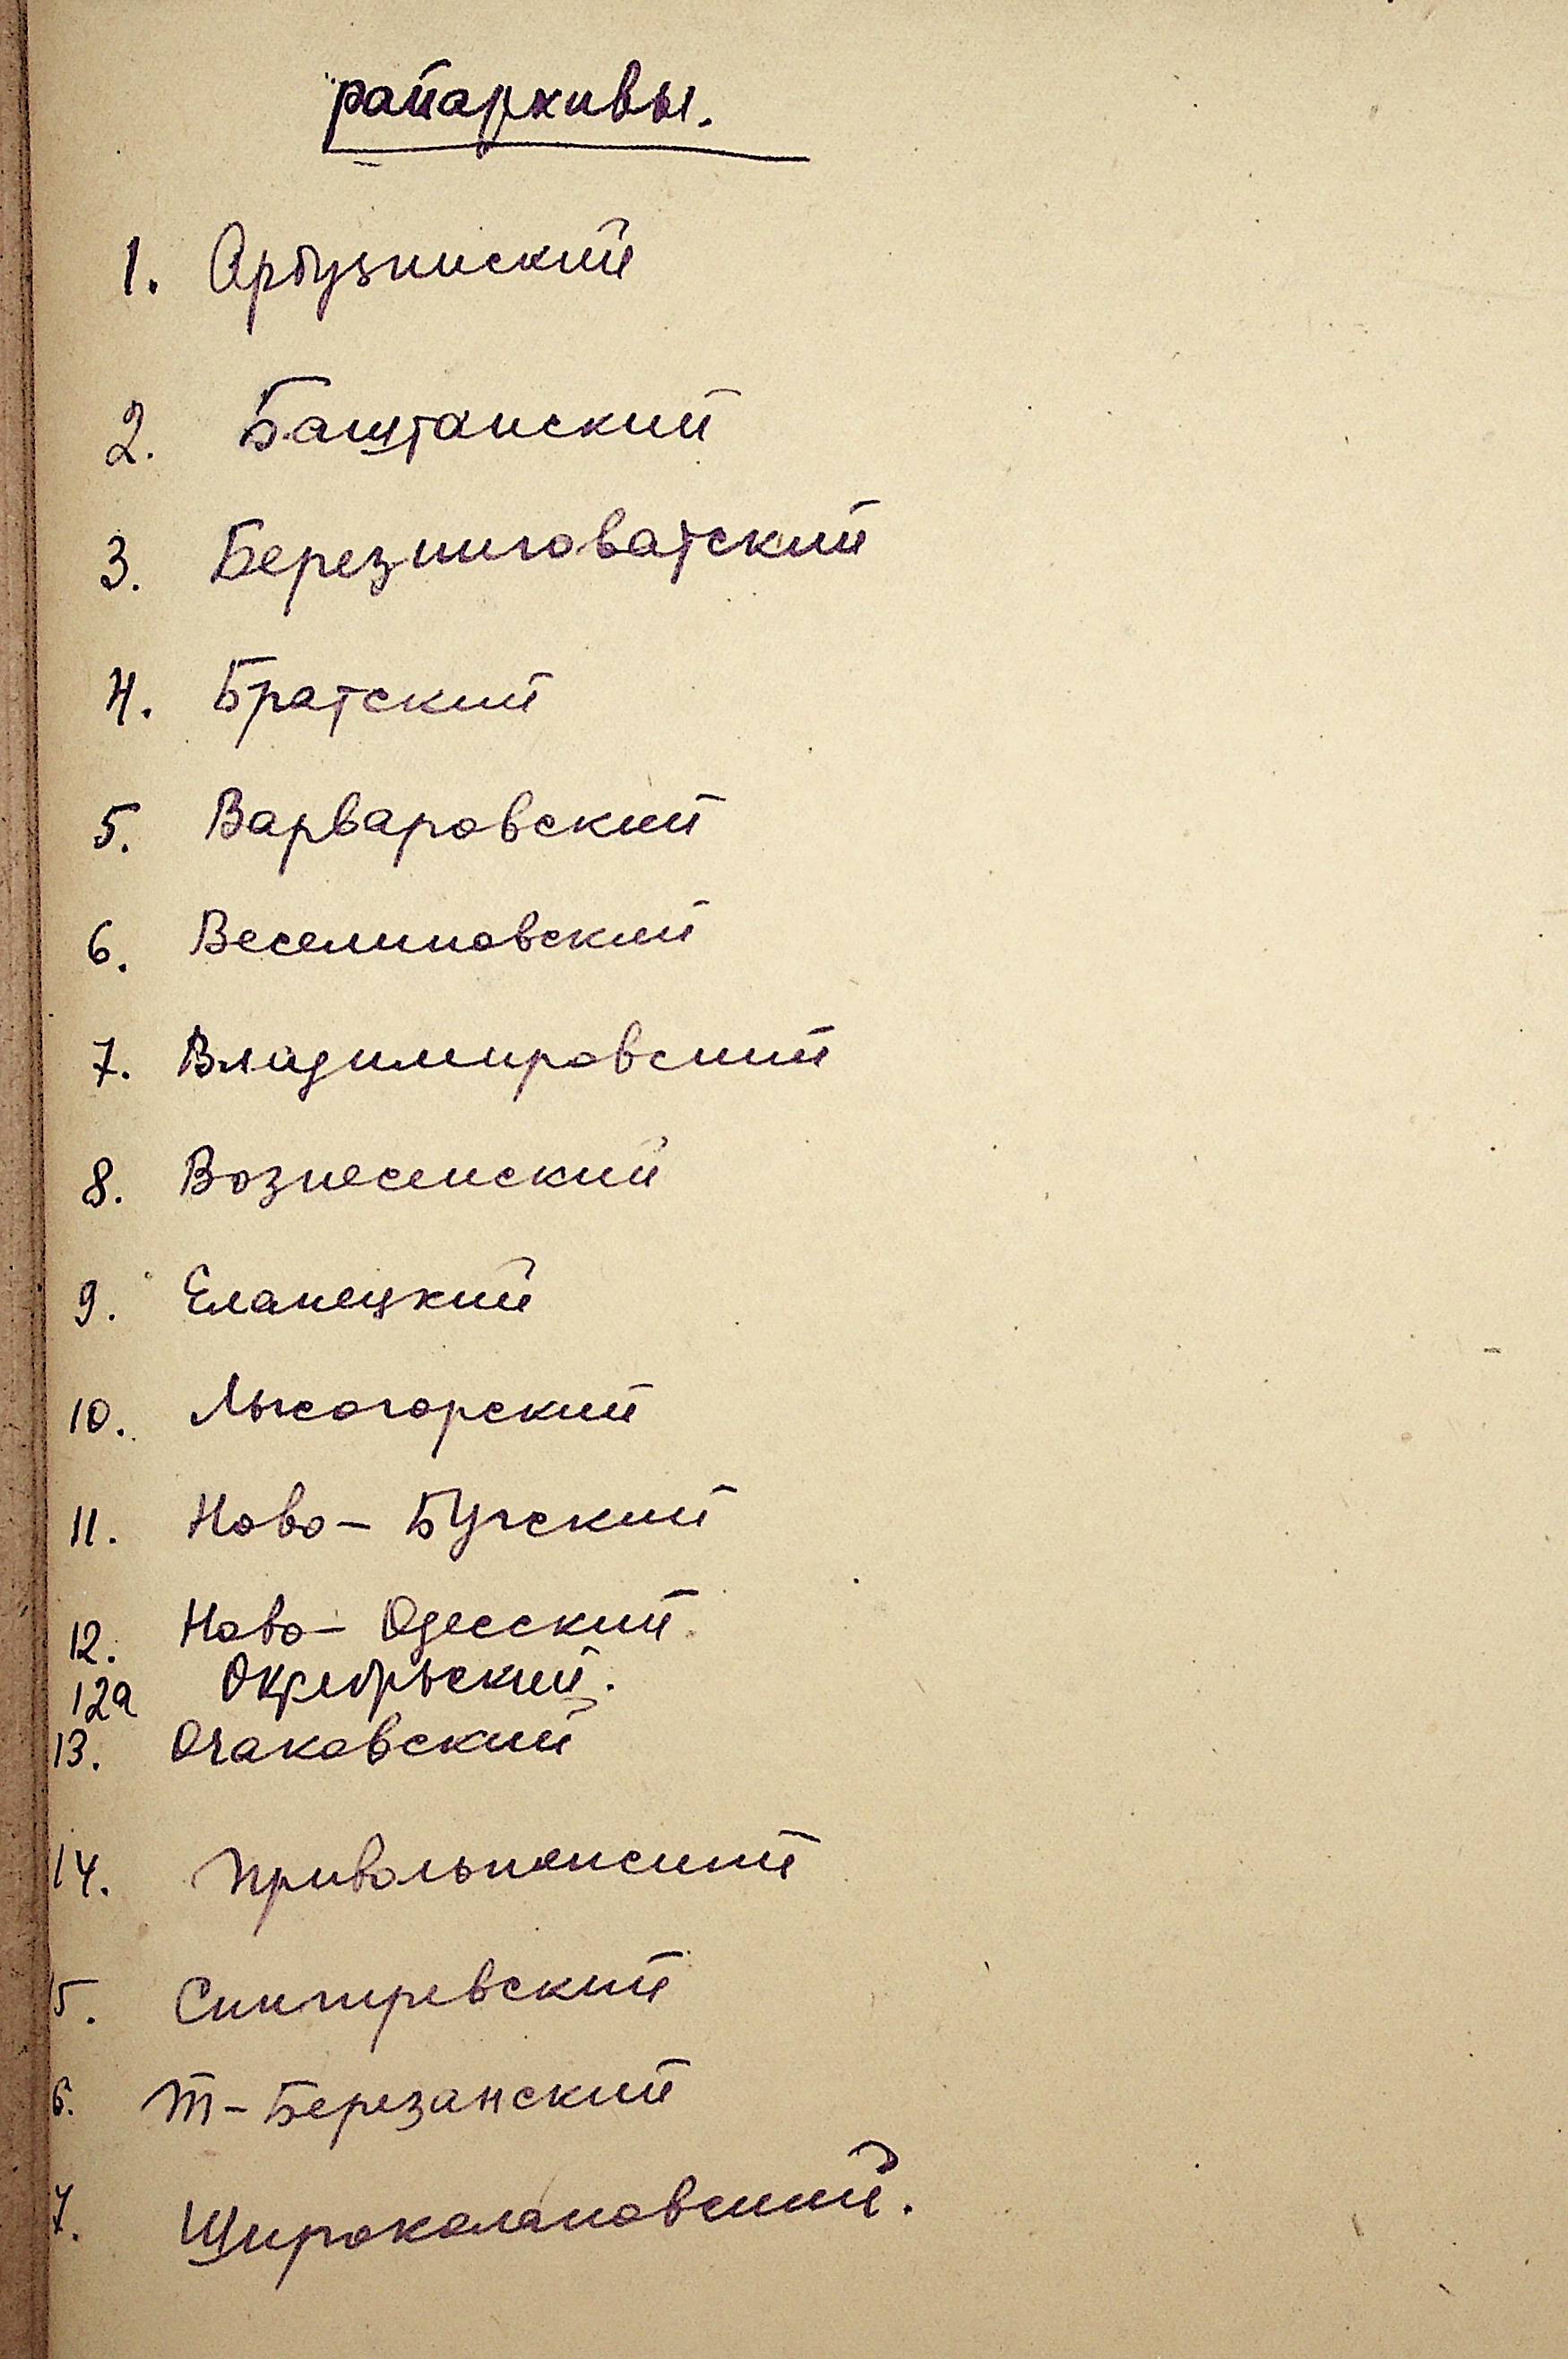 райархивы.
1. Арбузинский
2. Баштанский
3. Березниговатский
4. Братский
5. Варваровский
6. Веселиновский
7. Владимировский
8. Вознесенский
9. Еланецкий
10. Лысогорский
11. Ново-Бугский
12. Ново-Одесский
12а Октябрьский.
13. Очаковский
14. Привольнянский
15. Снигиревский
6. Т-Березанский
7. Широколановский.